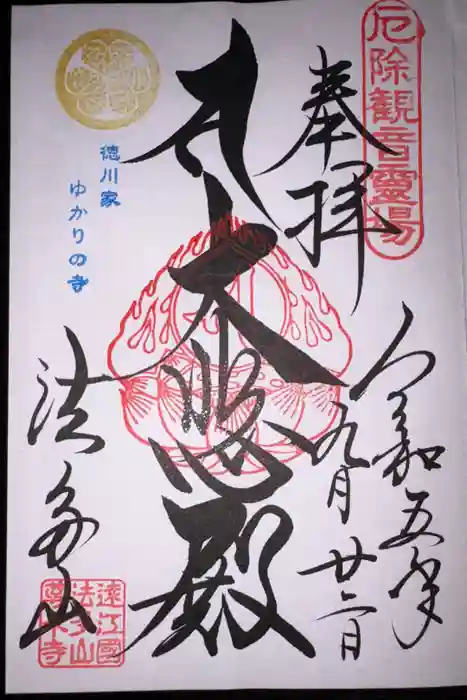 厄除観音靈場
奉拝
令和五年
九月廿二日
大悲殿
徳川家
ゆかりの寺
法多山
遠江國
法多山
尊永寺